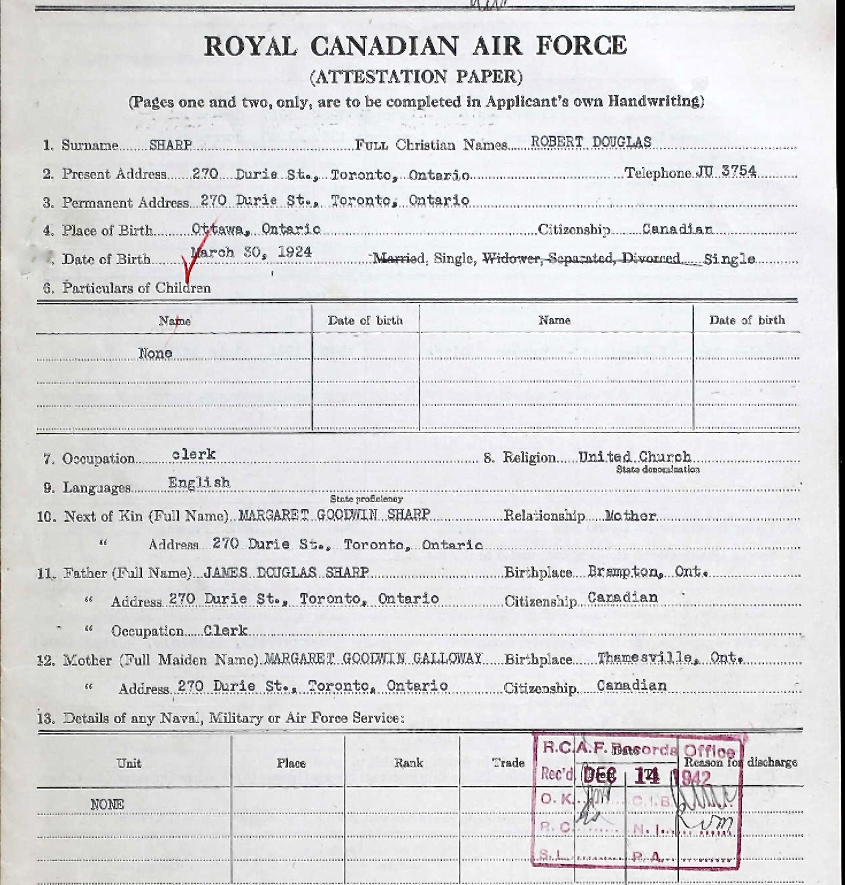 ROYAL CANADIAN AIR FORCE
(ATTESTATION PAPER)
(Pages one and two, only, are to be completed in Applicant's own Handwriting)
1. Surname SHARP FULL Christian Names ROBERT DOUGLAS
2. Present Address 270 Durie St., Toronto, Ontario Telephone JU 3754
3. Permanent Address 270 Durie St., Toronto, Ontario
4. Place of Birth Ottawa, Ontario Citizenship Canadian
. Date of Birth March 30, 1924 Married, Single, Widower, Separated, Divorced Single
6. Particulars of Children
Name Date of birth Name Date of birth
None
7. Occupation clerk 8. Religion United Church
State denomination
9. Languages English
State proficiency
10. Next of Kin (Full Name) MARGARET GOODWIN SHARP Relationship Mother
" Address 270 Durie St., Toronto, Ontario
11. Father (Full Name) JAMES DOUGLAS SHARP Birthplace Brampton, Ont.
" Address 270 Durie St., Toronto, Ontario Citizenship Canadian
" Occupation Clerk
12. Mother (Full Maiden Name) MARGARET GOODWIN GALLOWAY Birthplace Thamesville, Ont.
" Address 270 Durie St., Toronto, Ontario Citizenship Canadian
13. Details of any Naval, Military or Air Force Service:
R.C.A.F. Records Office
Unit Place Rank Trade Date Reason for discharge
Rec'd DEC 14 1942
NONE O.K. C.I.B.
R.C. N.I.
S.L. P.A.